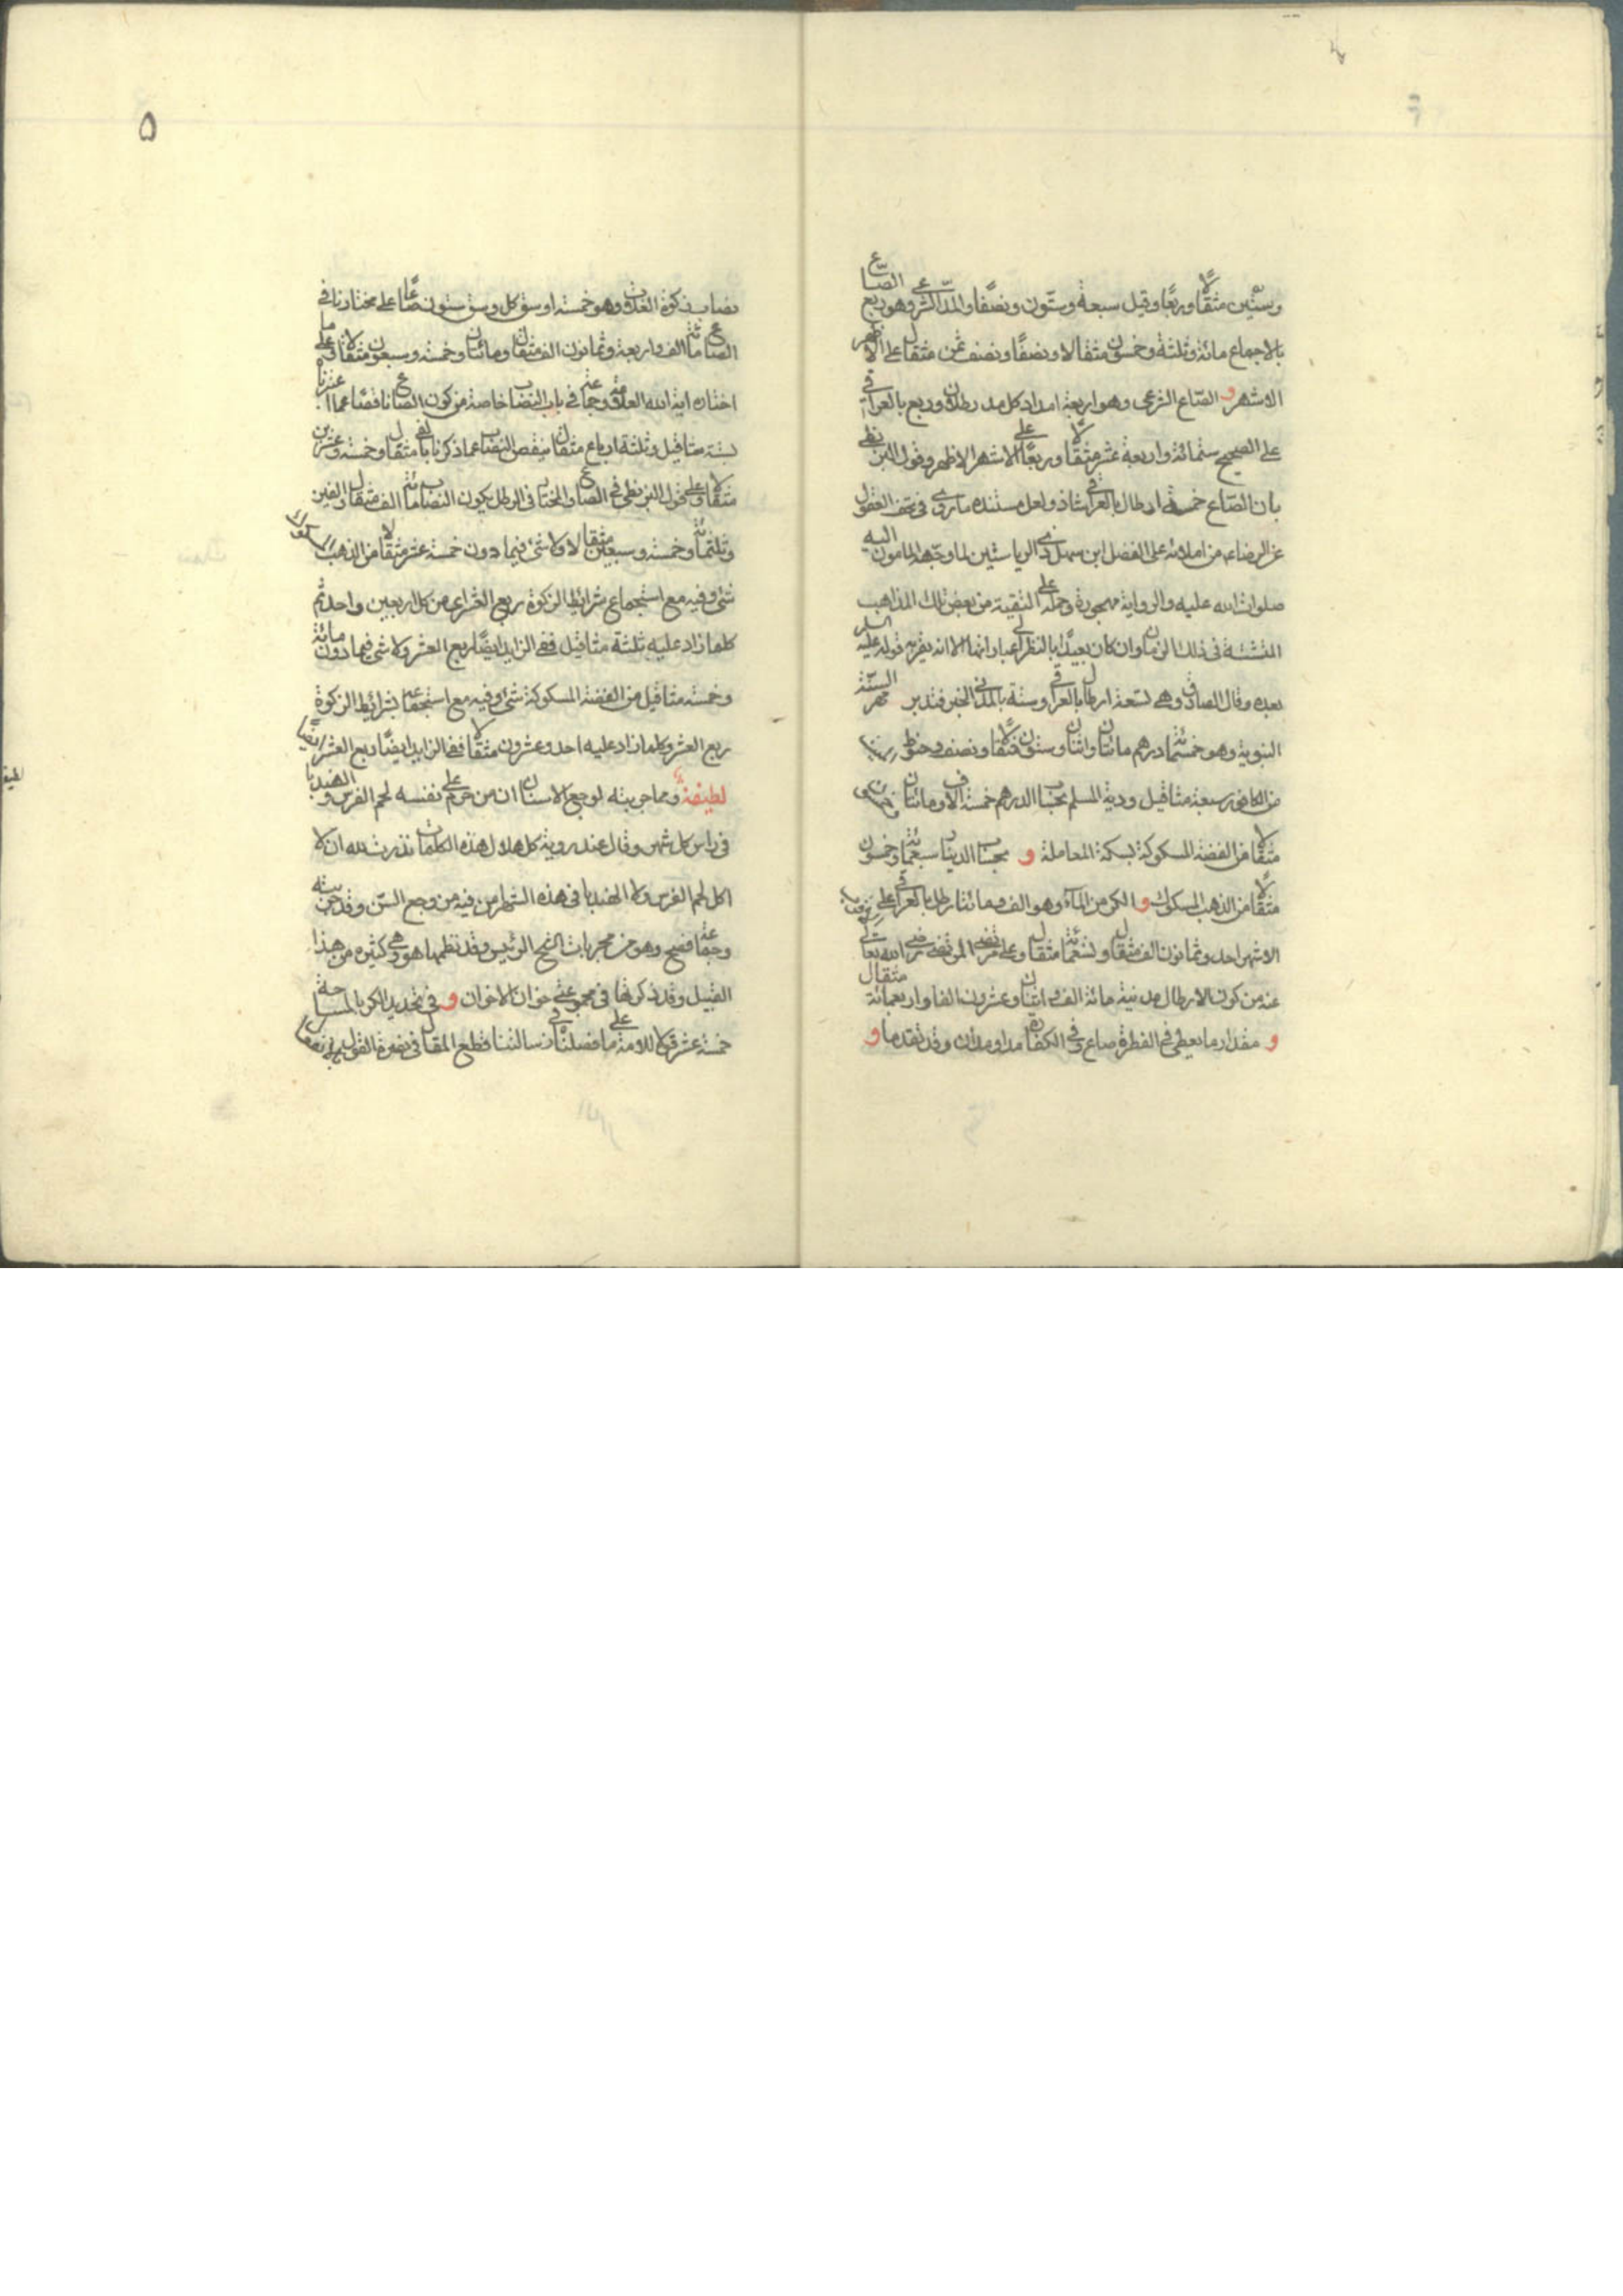 وستين مثقالًا وربعًا وقيل سبعة وستون ونصفًا والمد الشرعي وهو ربع الصاع
بالاجماع مائة وثلثة وخمسون مثقالا ونصفًا ونصف ثمن مثقال على الاظهر
الاشهر و الصاع الشرعي وهو اربعة امداد كل مد رطلان وربع بالعراقي
على الصحيح ستمائة واربعة عشر مثقالًا وربعًا على الاشهر الاظهر وقول البزنطي
بان الصاع خمسة ارطال بالعراقي شاذ ولعل مستنده ما روي في تحف العقول
عن الرضا من املائه على الفضل ابن سهل ذي الرياستين لما وجهه المامون اليه
صلوات الله عليه والرواية مهجورة وحمله على التقية من بعض تلك المذاهب
في ذلك الزمان وان كان بعيدًا بالنظر الى الا انه قوله عليه السلم
بعده وقال الصادق وهي تسعة ارطال بالعراقي وستة بالمدني الخبر فتدبر مهر السنة
النبوية وهو خمسمائة درهم مائتان واثنان وستون مثقالًا ونصف
سبعة مثاقيل ودية المسلم بحساب الدرهم خمسة آلاف ومائتان وخمسون
مثقالا من الفضة المسكوكة بسكة المعاملة و بحساب الدينار سبعمائة وخمسون
مثقالًا من الذهب المسكوك و الكر من الماء وهو الف ومائتا رطل بالعراقي على
الاشهر احد وثمانون الف مثقال وتسعمائة مثقال وعلى المرتضى رضي الله تعالى
عنه من كون الارطال مدنية مائة الف واثنان وعشرون الفا واربعمائة مثقال
و مقدار ما يعطى في الفطرة صاع وفي الكفارة مد او مدان وقد تقدما و
۵
نصاب زكوة الغلات وهو خمسة اوسق كل وسق ستون صاعًا على مختارنا في
الصاع مائة الف واربعة وثمانون الف مثقال ومائتان وخمسة وسبعون مثقالا وعلى ما
اختاره اية الله العلامة وجماعة في باب النصاب خاصة من كون الصاع ناقصًا عما اعتبرنا
بستة مثاقيل وثلثة ارباع مثقال ينقص النصاب عما ذكرنا بالفي مثقال وخمسة وعشرين
مثقالا وعلى قول البزنطي في الصاع والمختار في الرطل يكون النصاب مائة الف مثقال والفين
وثلثمائة وخمسة وسبعين مثقالا ولا شئ فيما دون خمسة عشر مثقالا من الذهب المسكوك
شئ وفيه مع استجماع شرائط الزكوة ربع العشر اي من كل اربعين واحد ثم
كلما زاد عليه ثلثة مثاقيل ففي الزايد ايضًا ربع العشر ولا شئ فيما دون مائة
وخمسة مثاقيل من الفضة المسكوكة شئ وفيه مع استجماعه شرائط الزكوة
ربع العشر وكلما زاد عليه احد وعشرون مثقالا ففي الزايد ايضًا ربع العشر ايضًا
لطيفة ومما جربته لوجع الاسنان ان من حرم على نفسه لحم الفرس والهندبا
في راس كل شهر وقال عند روية كل هلال هذه الكلمات نذرت لله ان لا
اكل لحم الفرس ولا الهندبا في هذه الشهر امن فيه من وجع السن وقد جربته
وجماعة فصح وهو من مجربات الشيخ الرئيس وقد نظمها هو وهي كثيرة من هذا
القبيل وقد ذكرنا في مجموعتي خوان الاخوان و في تحديد الكر بالمساحة
خمسة عشر قولا للامة ما فصلناه في رسالتنا قطع المقال في نصرة القول